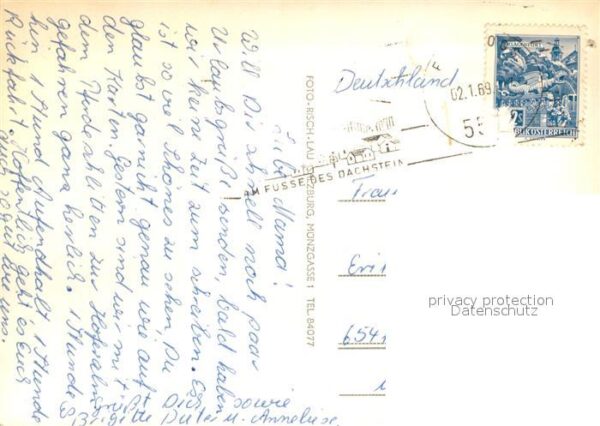 Liebe Mama!
Will Dir schnell noch paar
Urlaubsgrüße senden, bald haben
wir keine Zeit zum schreiben. Es
ist so viel Schönes zu sehen, Du
glaubst garnicht genau wie auf
den Karten. Gestern sind wir mit
dem Pferdeschlitten zur Hofalm
gefahren ganz herlich. 1 Stunde
hin 1 Stund Aufenthalt, 1 Stunde
Rückfahrt. Hoffentlich geht es Euch
auch so gut wie uns.
Es grüßt Dich sowie
Brigitte Dieter u. Anneliese.
FOTO-RESCH, LAU SALZBURG, MÜNZGASSE 1 TEL. 84077
Deutschland
02.1.69
55
AM FUSSE DES DACHSTEIN
KLAGENFURT
REPUBLIK ÖSTERREICH
Frau
Eri
654
privacy protection
Datenschutz